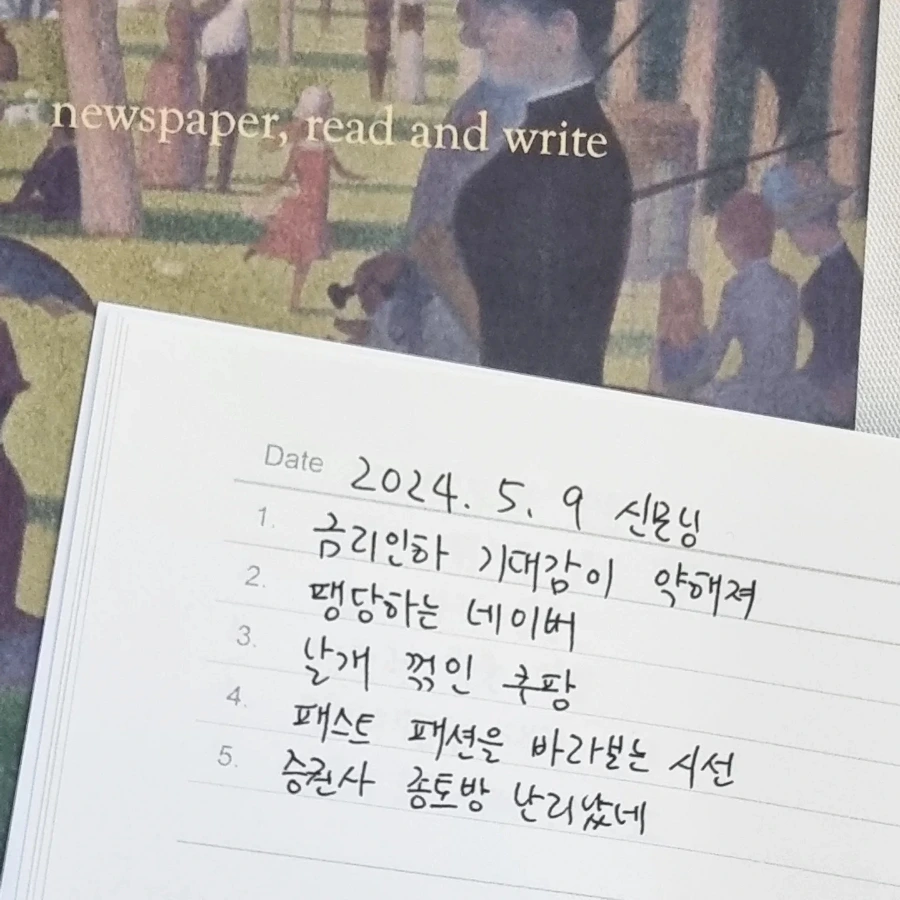 newspaper, read and write
Date 2024. 5. 9 신문닝
1. 금리인하 기대감이 약해져
2. 팽당하는 네이버
3. 날개 꺾인 쿠팡
4. 패스트 패션을 바라보는 시선
5. 증권사 종토방 난리났네